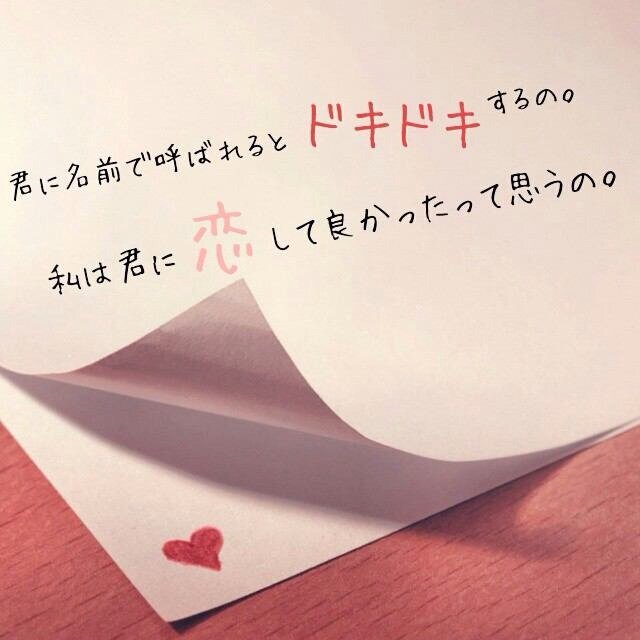 君に名前で呼ばれるとドキドキするの。
私は君に恋して良かったって思うの。